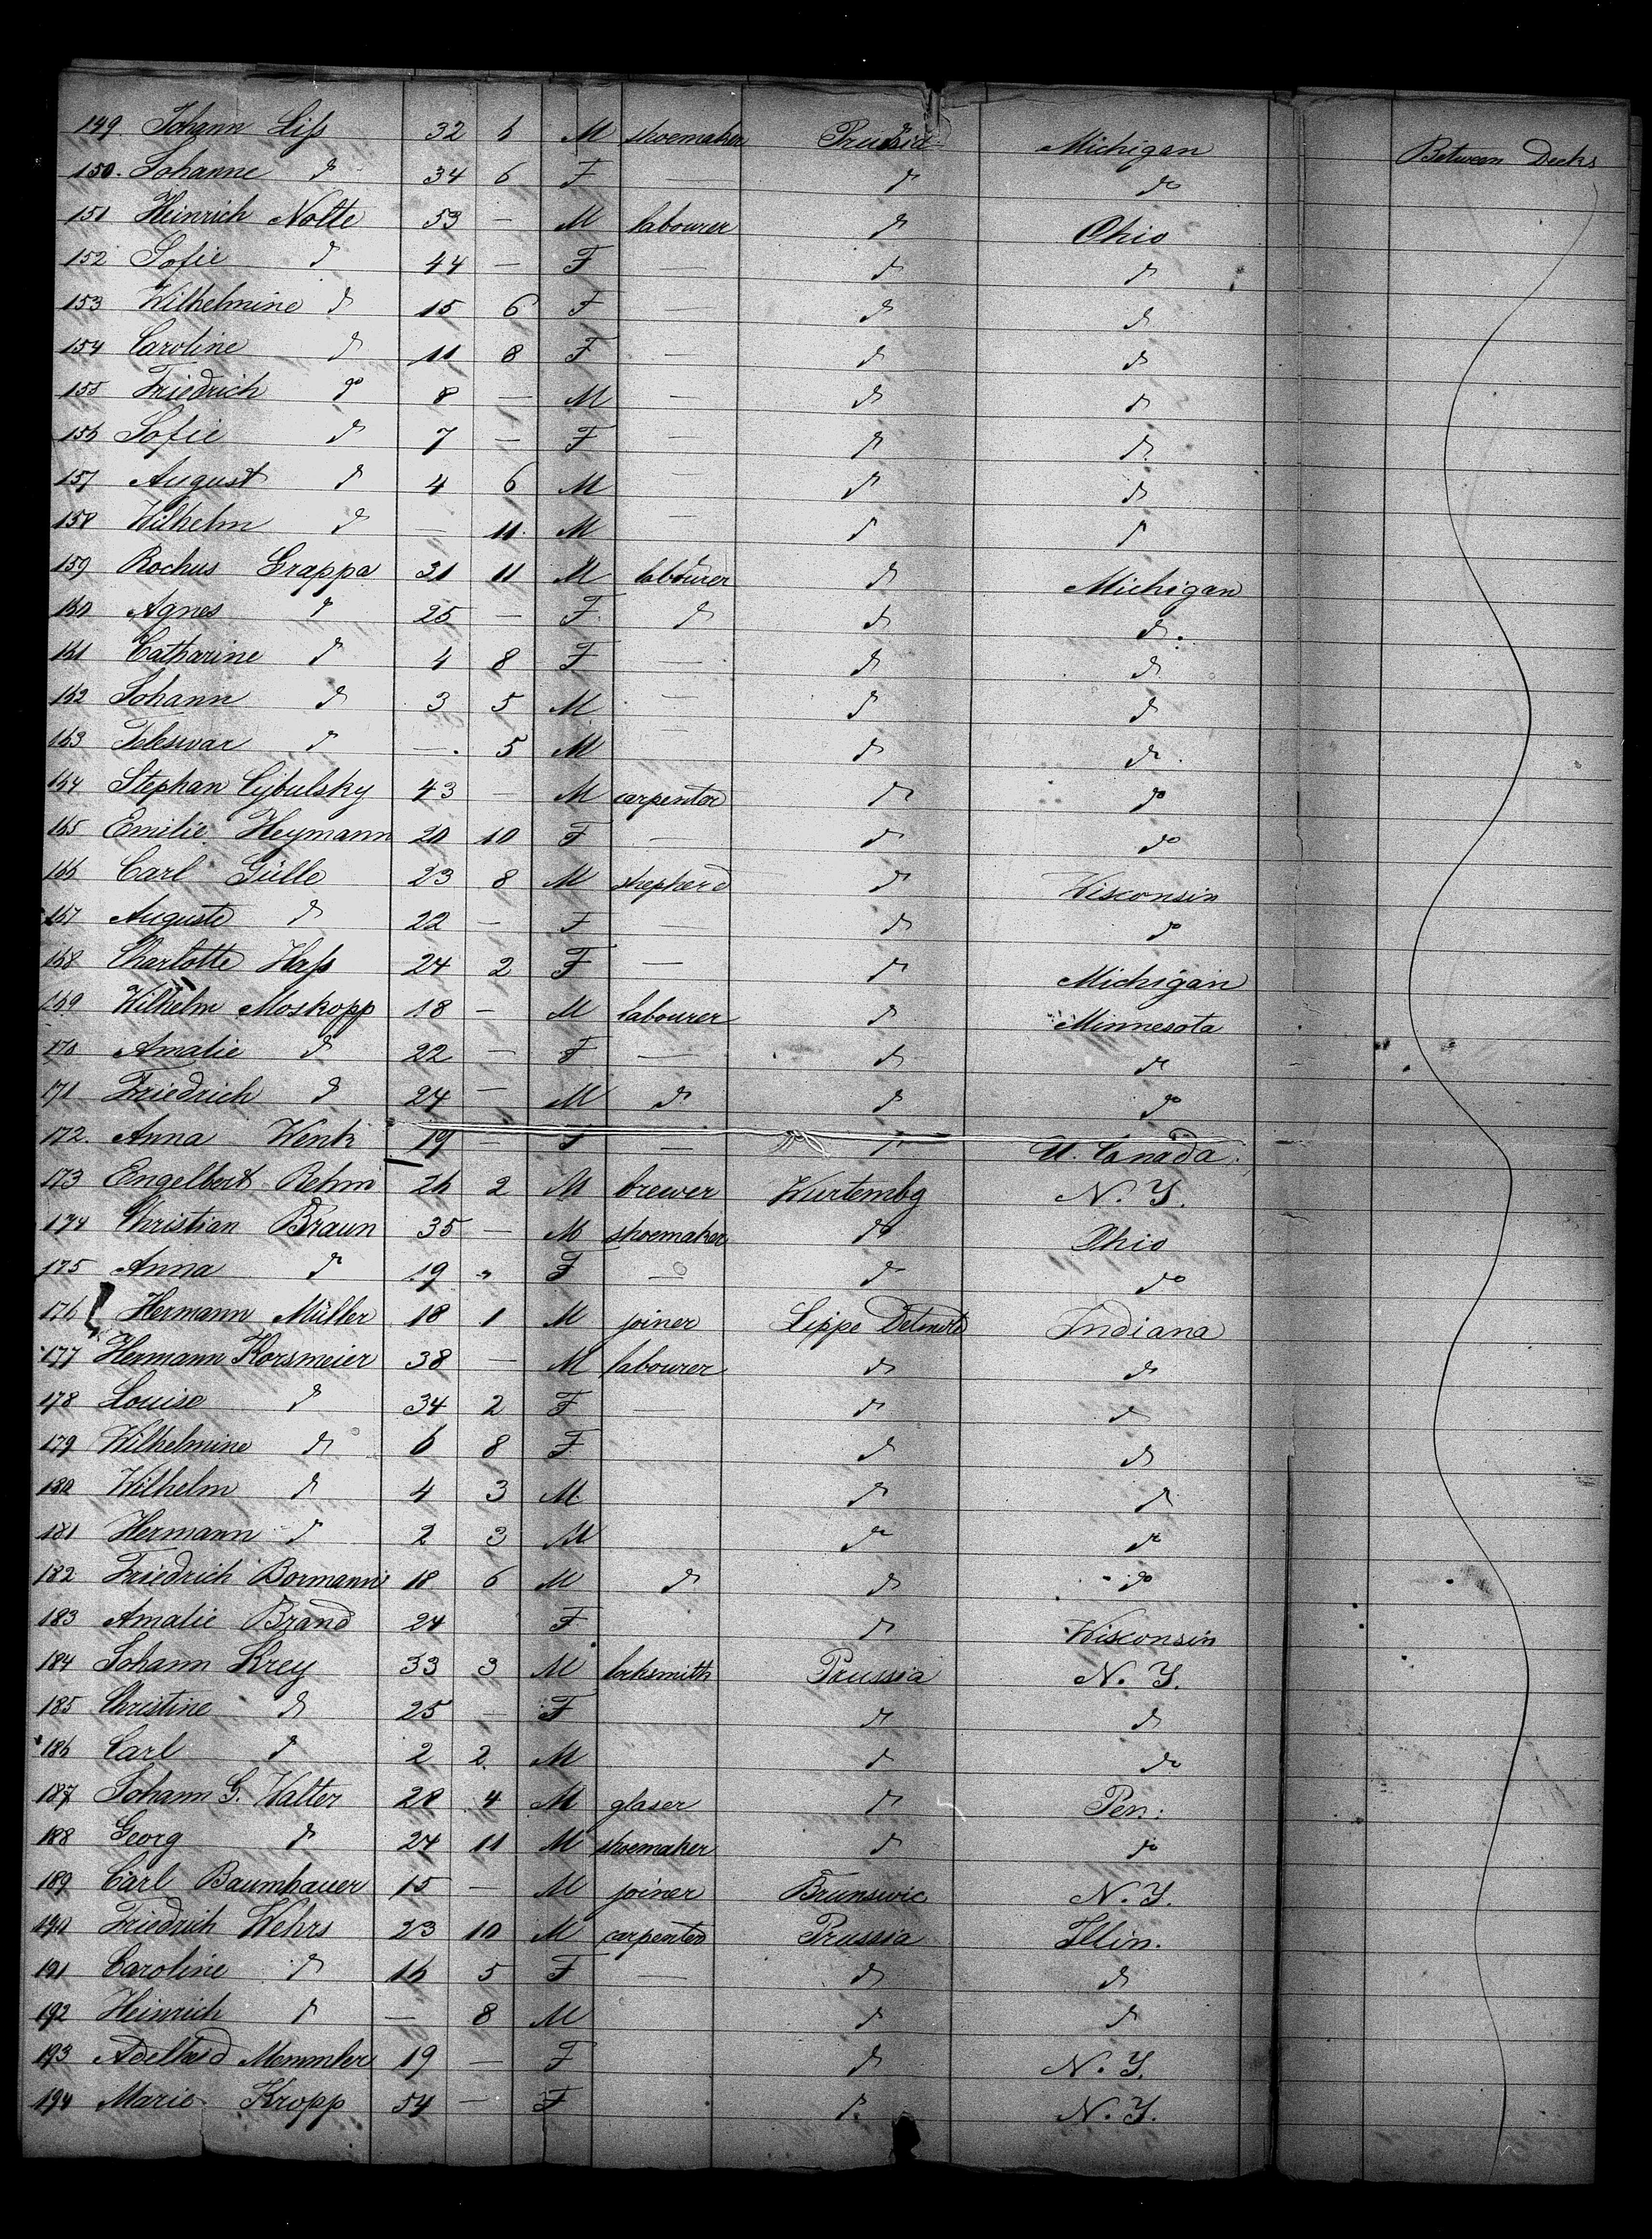 149 Johann Liss 32 6 M shoemaker Prussia Michigan Between Decks
150. Johanne do 34 6 F — do do
151 Heinrich Nolte 53 — M labourer do Ohio
152 Sofie do 44 — F — do do
153 Wilhelmine do 15 6 F — do do
154 Caroline do 11 8 F — do do
155 Friedrich do 8 — M — do do
156 Sofie do 7 — F — do do
157 August do 4 6 M — do do
158 Wilhelm do — 11. M — do do
159 Rochus Grappa 31 11 M labourer do Michigan
160 Agnes do 25 — F. do do do.
161 Catharine do 4 8 F — do do
162 Johann do 3 5 M — do do
163 do —. 5 M — do do.
164 Stephan Cybulsky 43 — M carpenter do do
165 Emilie Heymann 20 10 F — do do
166 Carl Gülle 23 8 M shepherd do Wisconsin
167 Auguste do 22 — F — do do
168 Charlotte Hass 24 2 F — do Michigan
169 Wilhelm Moskopp 18 — M labourer do Minnesota
170 Amalie do 22 — F — do do
171 Friedrich do 24 — M do do do
172. Anna Wenk 19 — F — do U. Canada.
173 Engelbert Rehm 26 2 M brewer Wurtembg N. Y.
174 Christian Braun 35 — M shoemaker do Ohio
175 Anna do 19 " F — do do
176 Hermann Müller 18 1 M joiner Lippe Detmold Indiana
177 Hermann Korsmeier 38 — M labourer do do
178 Louise do 34 2 F — do do
179 Wilhelmine do 6 8 F do do
180 Wilhelm do 4 3 M. do do
181 Hermann do 2 3 M do do
182 Friedrich Bormann 18 6 M do do do
183 Amalie Brand 24 F. do Wisconsin
184 Johann Krey 33 3 M locksmith Prussia N. Y.
185 Christine do 25 — F do do
186 Carl do 2 2. M do do
187 Johann G. Walter 28 4 M glaser do Pen:
188 Georg do 24 11 M shoemaker do do
189 Carl Baumhauer 15 — M joiner Brunswic N. Y.
190 Friedrich Wehrs 23 10 M carpenter Prussia Illin.
191 Caroline do 16 5 F — do do
192 Heinrich do — 8 M do do
193 Adelheid Memmler 19 — F do N. Y.
194 Marie Kropp 54 — F do. N. Y.